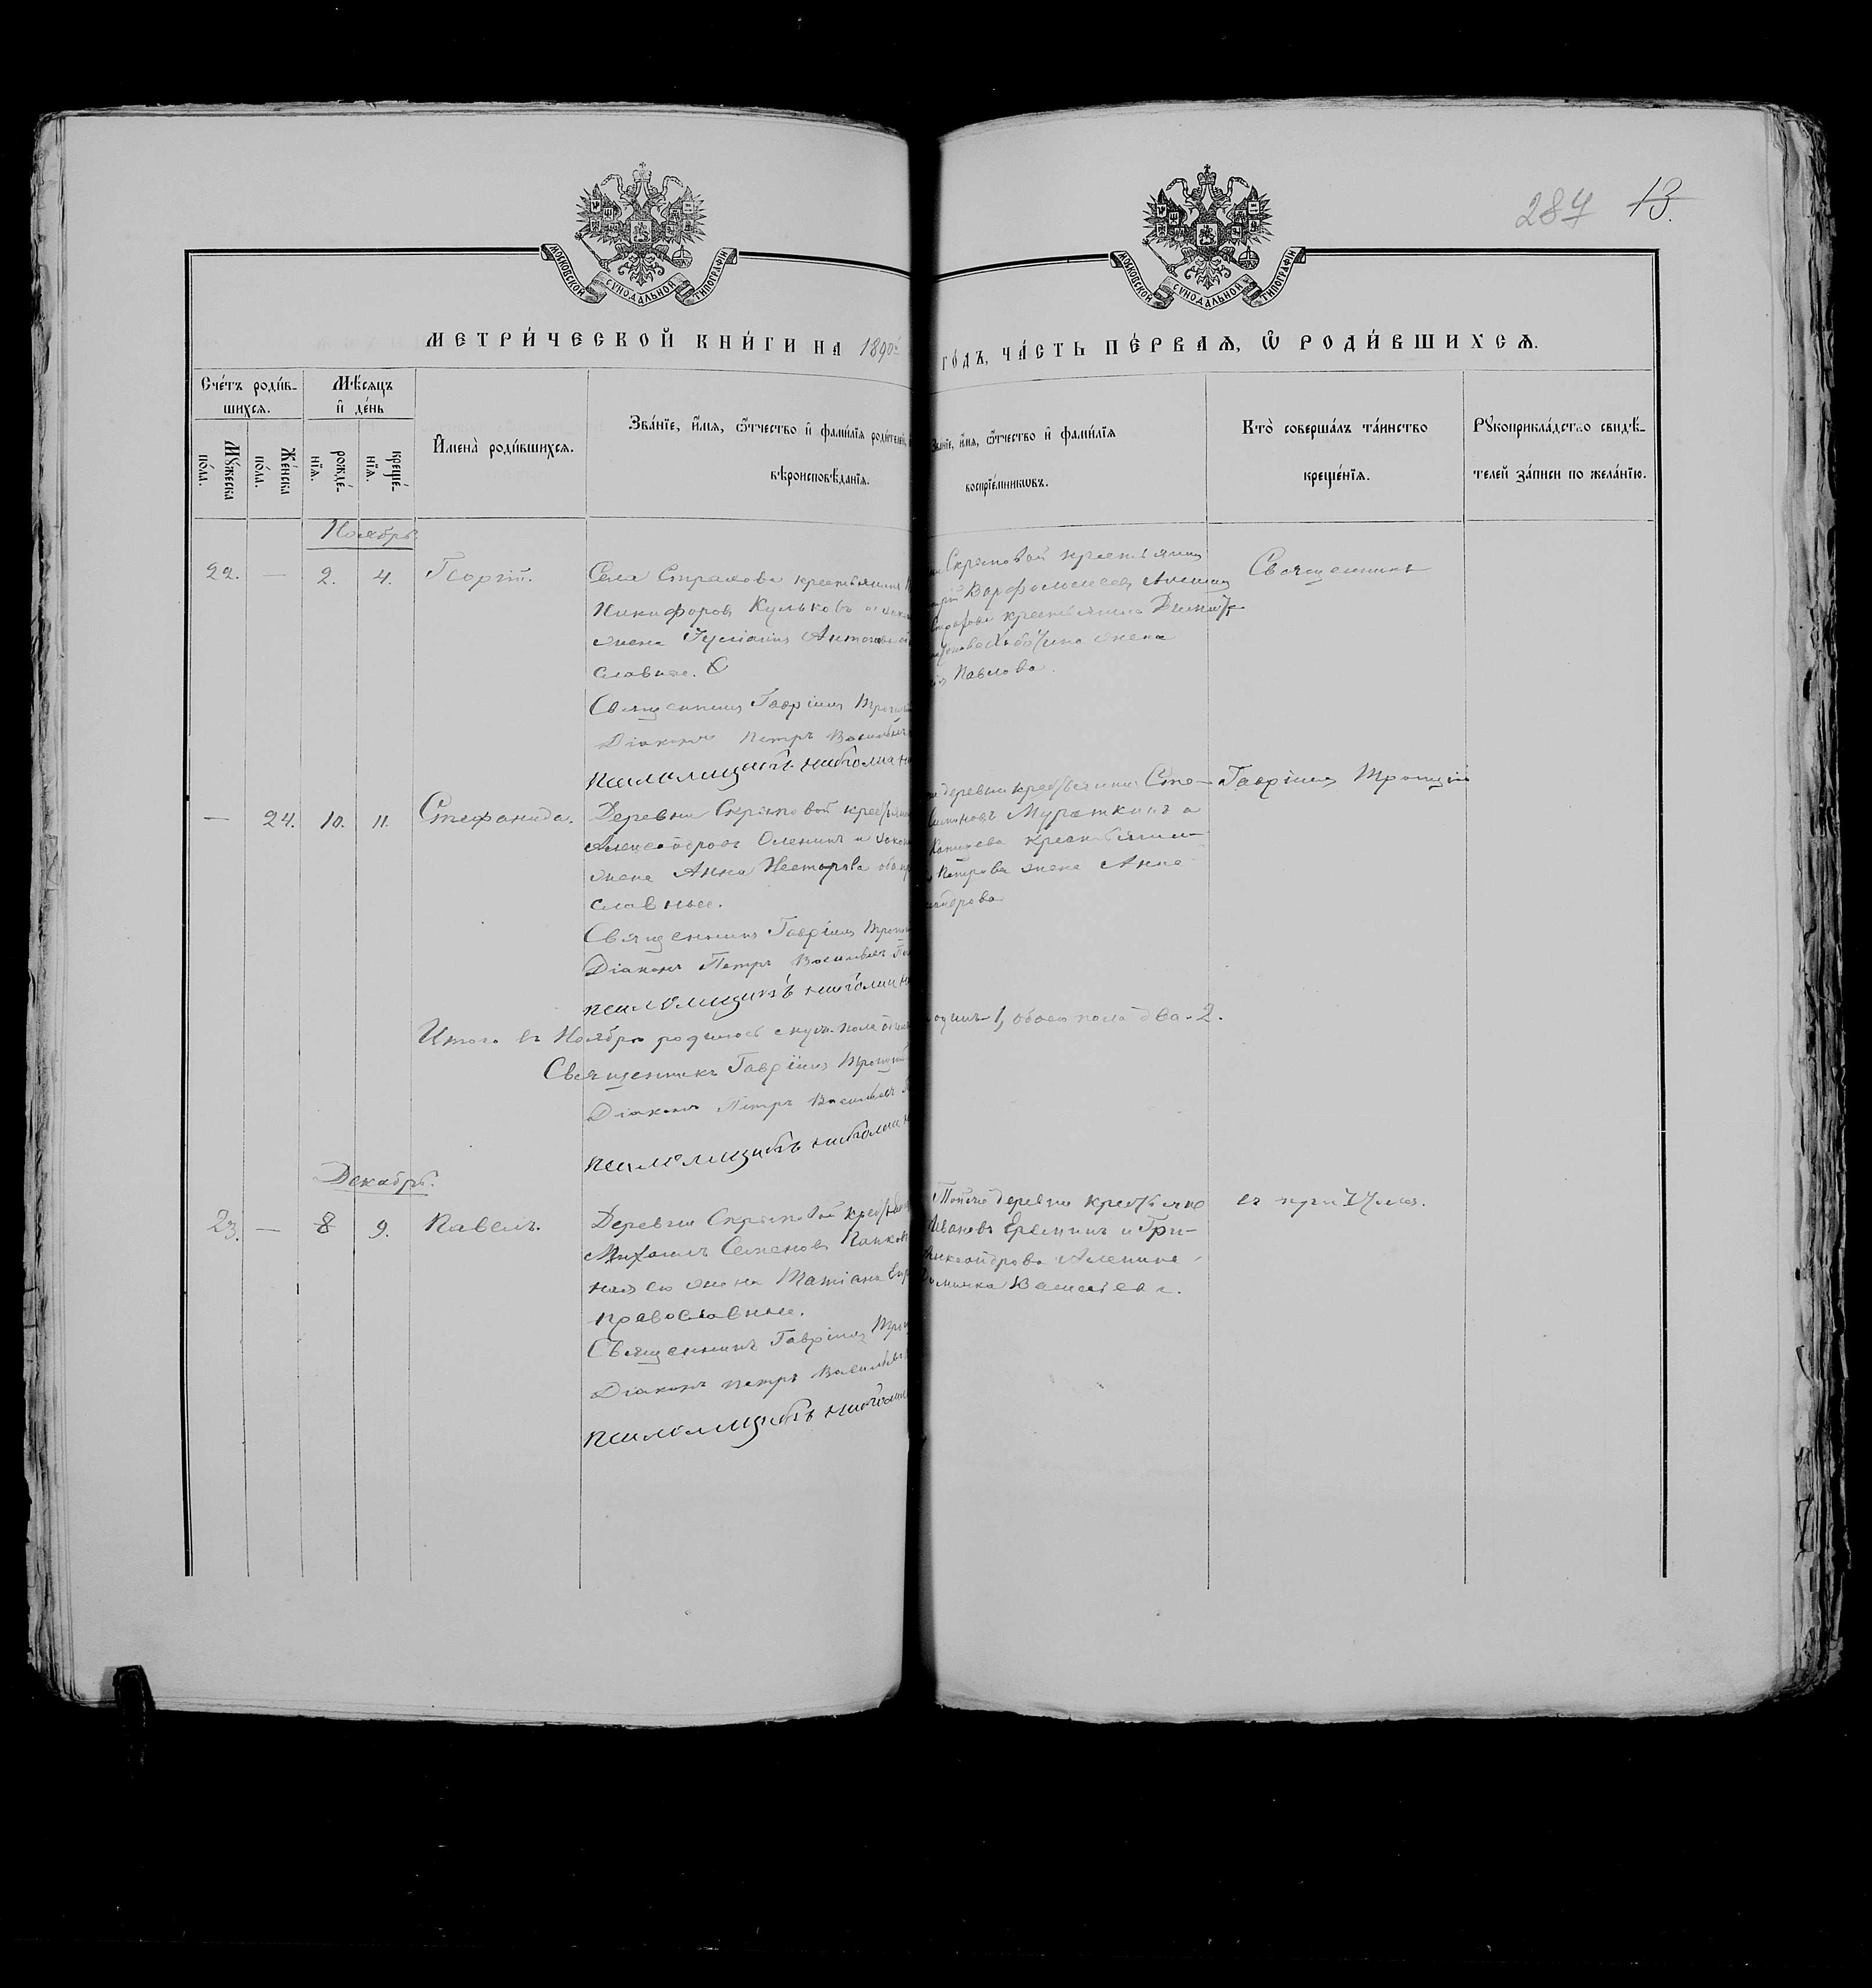 287 13.
МОСКОВСКОЙ СѴНОДАЛЬНОЙ ТИПОГРАФІИ
МОСКОВСКОЙ СѴНОДАЛЬНОЙ ТИПОГРАФІИ
МЕТРИ́ЧЕСКОЙ КНИ́ГИ НА 1890й
ГО́ДЪ, ЧА́СТЬ ПЕ́РВАѦ, Ѡ҆ РОДИ́ВШИХСѦ.
Сче́тъ роди́в-
шихсѧ.
Мѣ́сяцъ
и҆ де́нь
Мꙋ́жеска
по́ла.
Же́нска
по́ла.
рожде́-
нїѧ.
креще́-
нїѧ.
И҆мена̀ роди́вшихсѧ.
Зва́нїе, и҆́мѧ, ѻ҆́тчество и҆ фами́лїѧ роди́телей,
вѣроисповѣ́данїѧ.
Зва́нїе, и҆́мѧ, ѻ҆́тчество и҆ фами́лїѧ
воспрїе́мникѡвъ.
Кто̀ соверша́лъ та́инство
креще́нїѧ.
Рꙋкоприкла́дство свидѣ́-
телей за́писи по жела́нїю.
Ноябрь
22. — 2. 4. Георгій.
Села Страхова крестьянинъ
Никифоровъ Кульковъ и закон
жена Іуліанія Антонова
славные.
Священникъ Гавріилъ Троицкій
Діаконъ Петръ Васильевъ
Псаломщикъ Николай
Скрыповой крестьянинъ
Варфоломеевъ
крестьянина
жена
Павлова.
Священникъ
— 24. 10. 11. Стефанида.
Деревни Скрыповой крестьянинъ
Александровъ Оленинъ и закон
жена Анна Несторова оба пра
славные.
Священникъ Гавріилъ Троицкій
Діаконъ Петръ Васильевъ
псаломщикъ Николай
деревни крестьянинъ Сте-
Мурашкинъ и
крестьянина
Петрова жена Анна
Гавріилъ Троицкій
Итого въ Ноябрѣ родилось муж. пола одинъ
одинъ-1, обоего пола два-2.
Священникъ Гавріилъ Троицкій
Діаконъ Петръ Васильевъ
псаломщикъ Николай
Декабрь.
23. — 8 9. Павелъ.
Деревни Скрыповой крестьянинъ
Михаилъ Семеновъ Панков
ная его жена Татіана
православные.
Священникъ Гавріилъ Троиц
Діаконъ Петръ Васильевъ
псаломщикъ Николай
Тойже деревни крестьяне
Ивановъ Ереминъ и Гри-
Александрова Аленина
Васильева.
съ причтомъ.